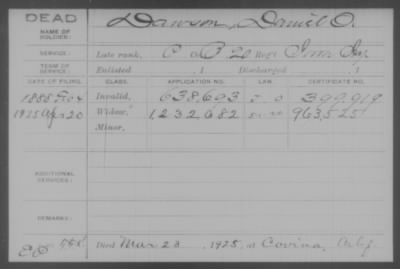 DEAD
NAME OF SOLDIER: Dawson, Daniel O.
SERVICE: Late rank, Co. B 20 Reg't Iowa Inf
TERM OF SERVICE: Enlisted , 1 Discharged , 1
DATE OF FILING. CLASS. APPLICATION NO. LAW. CERTIFICATE NO.
1888 Invalid, 638,693 399,919
1925 Apr 20 Widow, 1,232,682 963,525
Minor,
ADDITIONAL SERVICES:
REMARKS:
Died Mar 23, 1925, at Covina, Calif